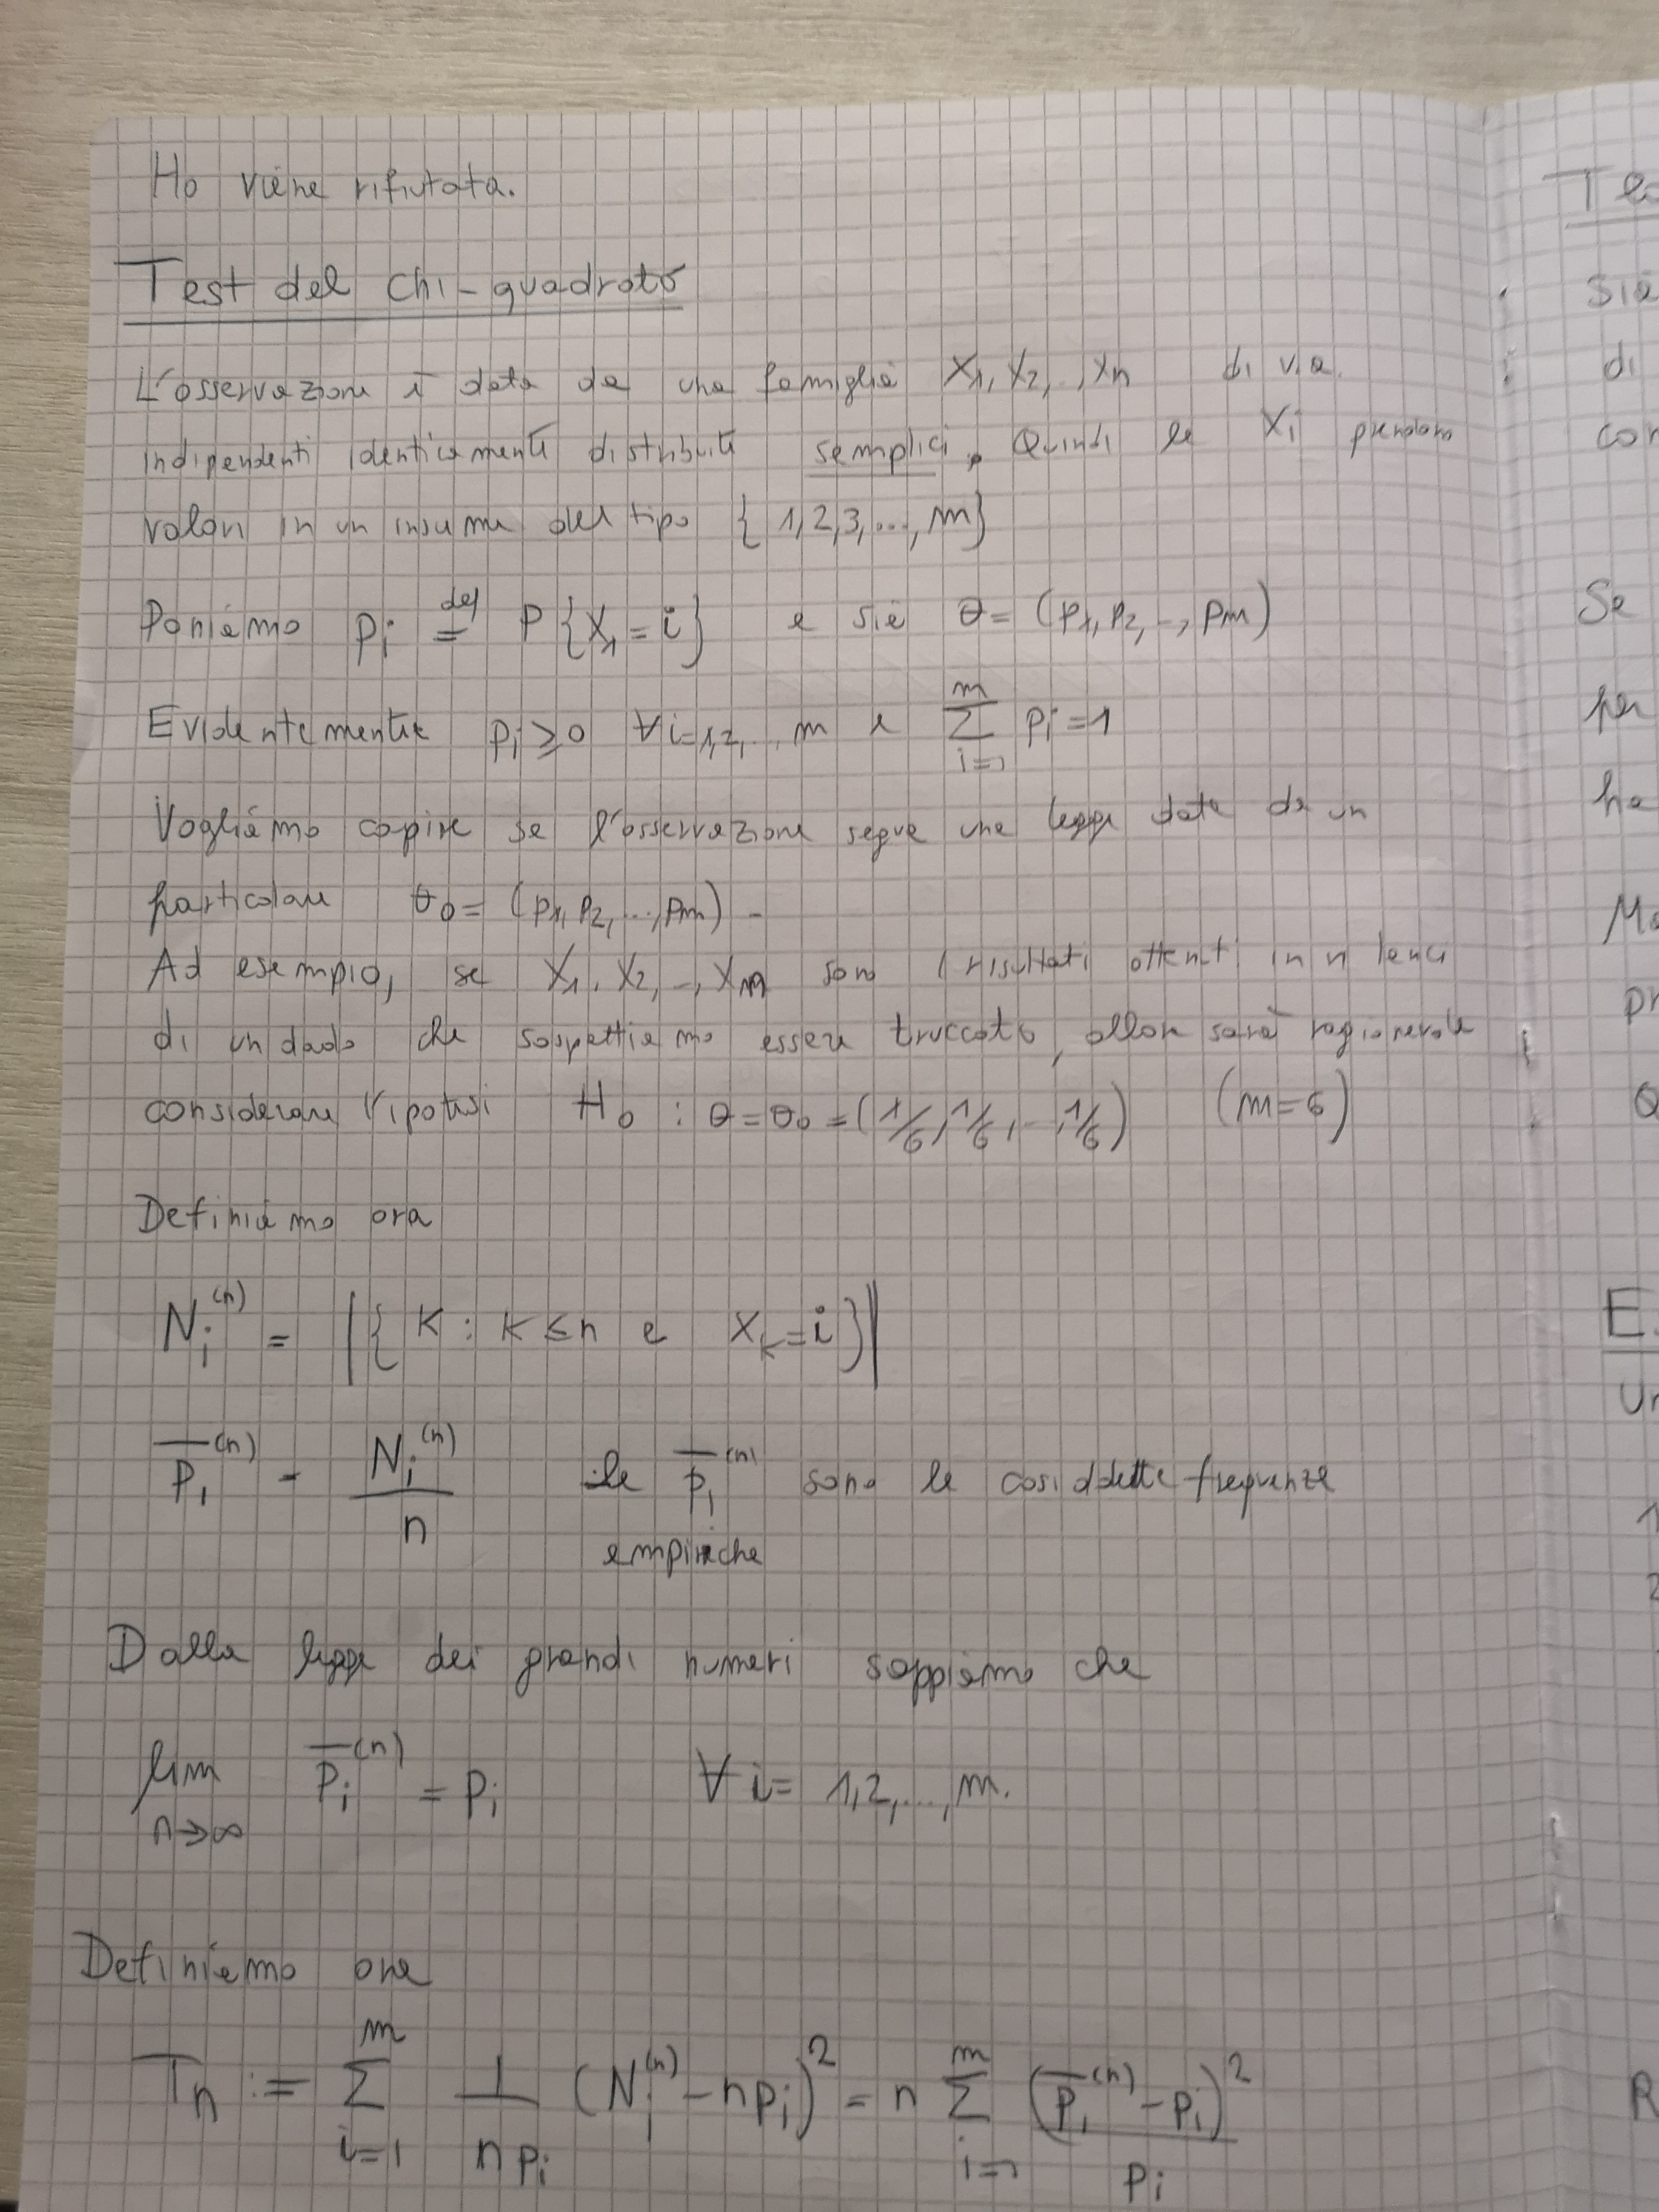 Ho viene rifiutata.
Test del chi-quadrato
L'osservazione è data da una famiglia X₁, X₂, .., Xn di v.a.
indipendenti identicamente distribuite semplici. Quindi le Xi prendono
valori in un insieme del tipo {1,2,3,...,m}
Poniamo pi def= P{X₁=i} e sia θ= (p₁,p₂,..,pm)
Evidentemente pi ≥ 0 ∀i=1,2,.. m e ∑_{i=1}^{m} pi=1
Vogliamo capire se l'osservazione segue una legge data da un
particolare θ₀= (p₁,p₂,...,pm).
Ad esempio, se X₁, X₂, .., Xn sono i risultati ottenuti in n lanci
di un dado che sospettiamo essere truccato, allora sarà ragionevole
considerare l'ipotesi H₀ : θ=θ₀=(1/6,1/6,..,1/6) (m=6)
Definiamo ora
Ni^(n) = |{K : K ≤ n e X_k=i}|
p̄i^(n) = Ni^(n)/n le p̄i^(n) sono le cosiddette frequenze
empiriche
Dalla legge dei grandi numeri sappiamo che
lim_{n→∞} p̄i^(n) = pi ∀ i= 1,2,...,m.
Definiamo ora
Tn := ∑_{i=1}^{m} 1/(n pi) (Ni^(n) - npi)² = n ∑_{i=1}^{m} (p̄i^(n) - pi)²/pi
Se
per
ha
di